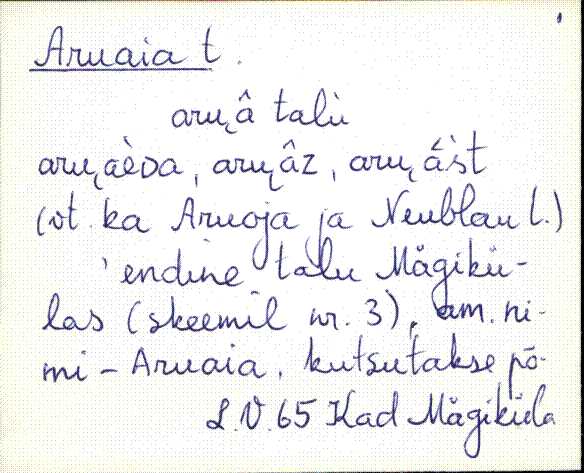 Aruaia t.
aru̯â talù
aru̯aèʋa, aru̯âz, aru̯ást
(vt. ka Aruoja ja Neublau t.)
endine talu Mägikü-
las (skeemil nr. 3), am. ni-
mi - Aruaia, kutsutakse pō-
L.V. 65 Kad Mägiküla